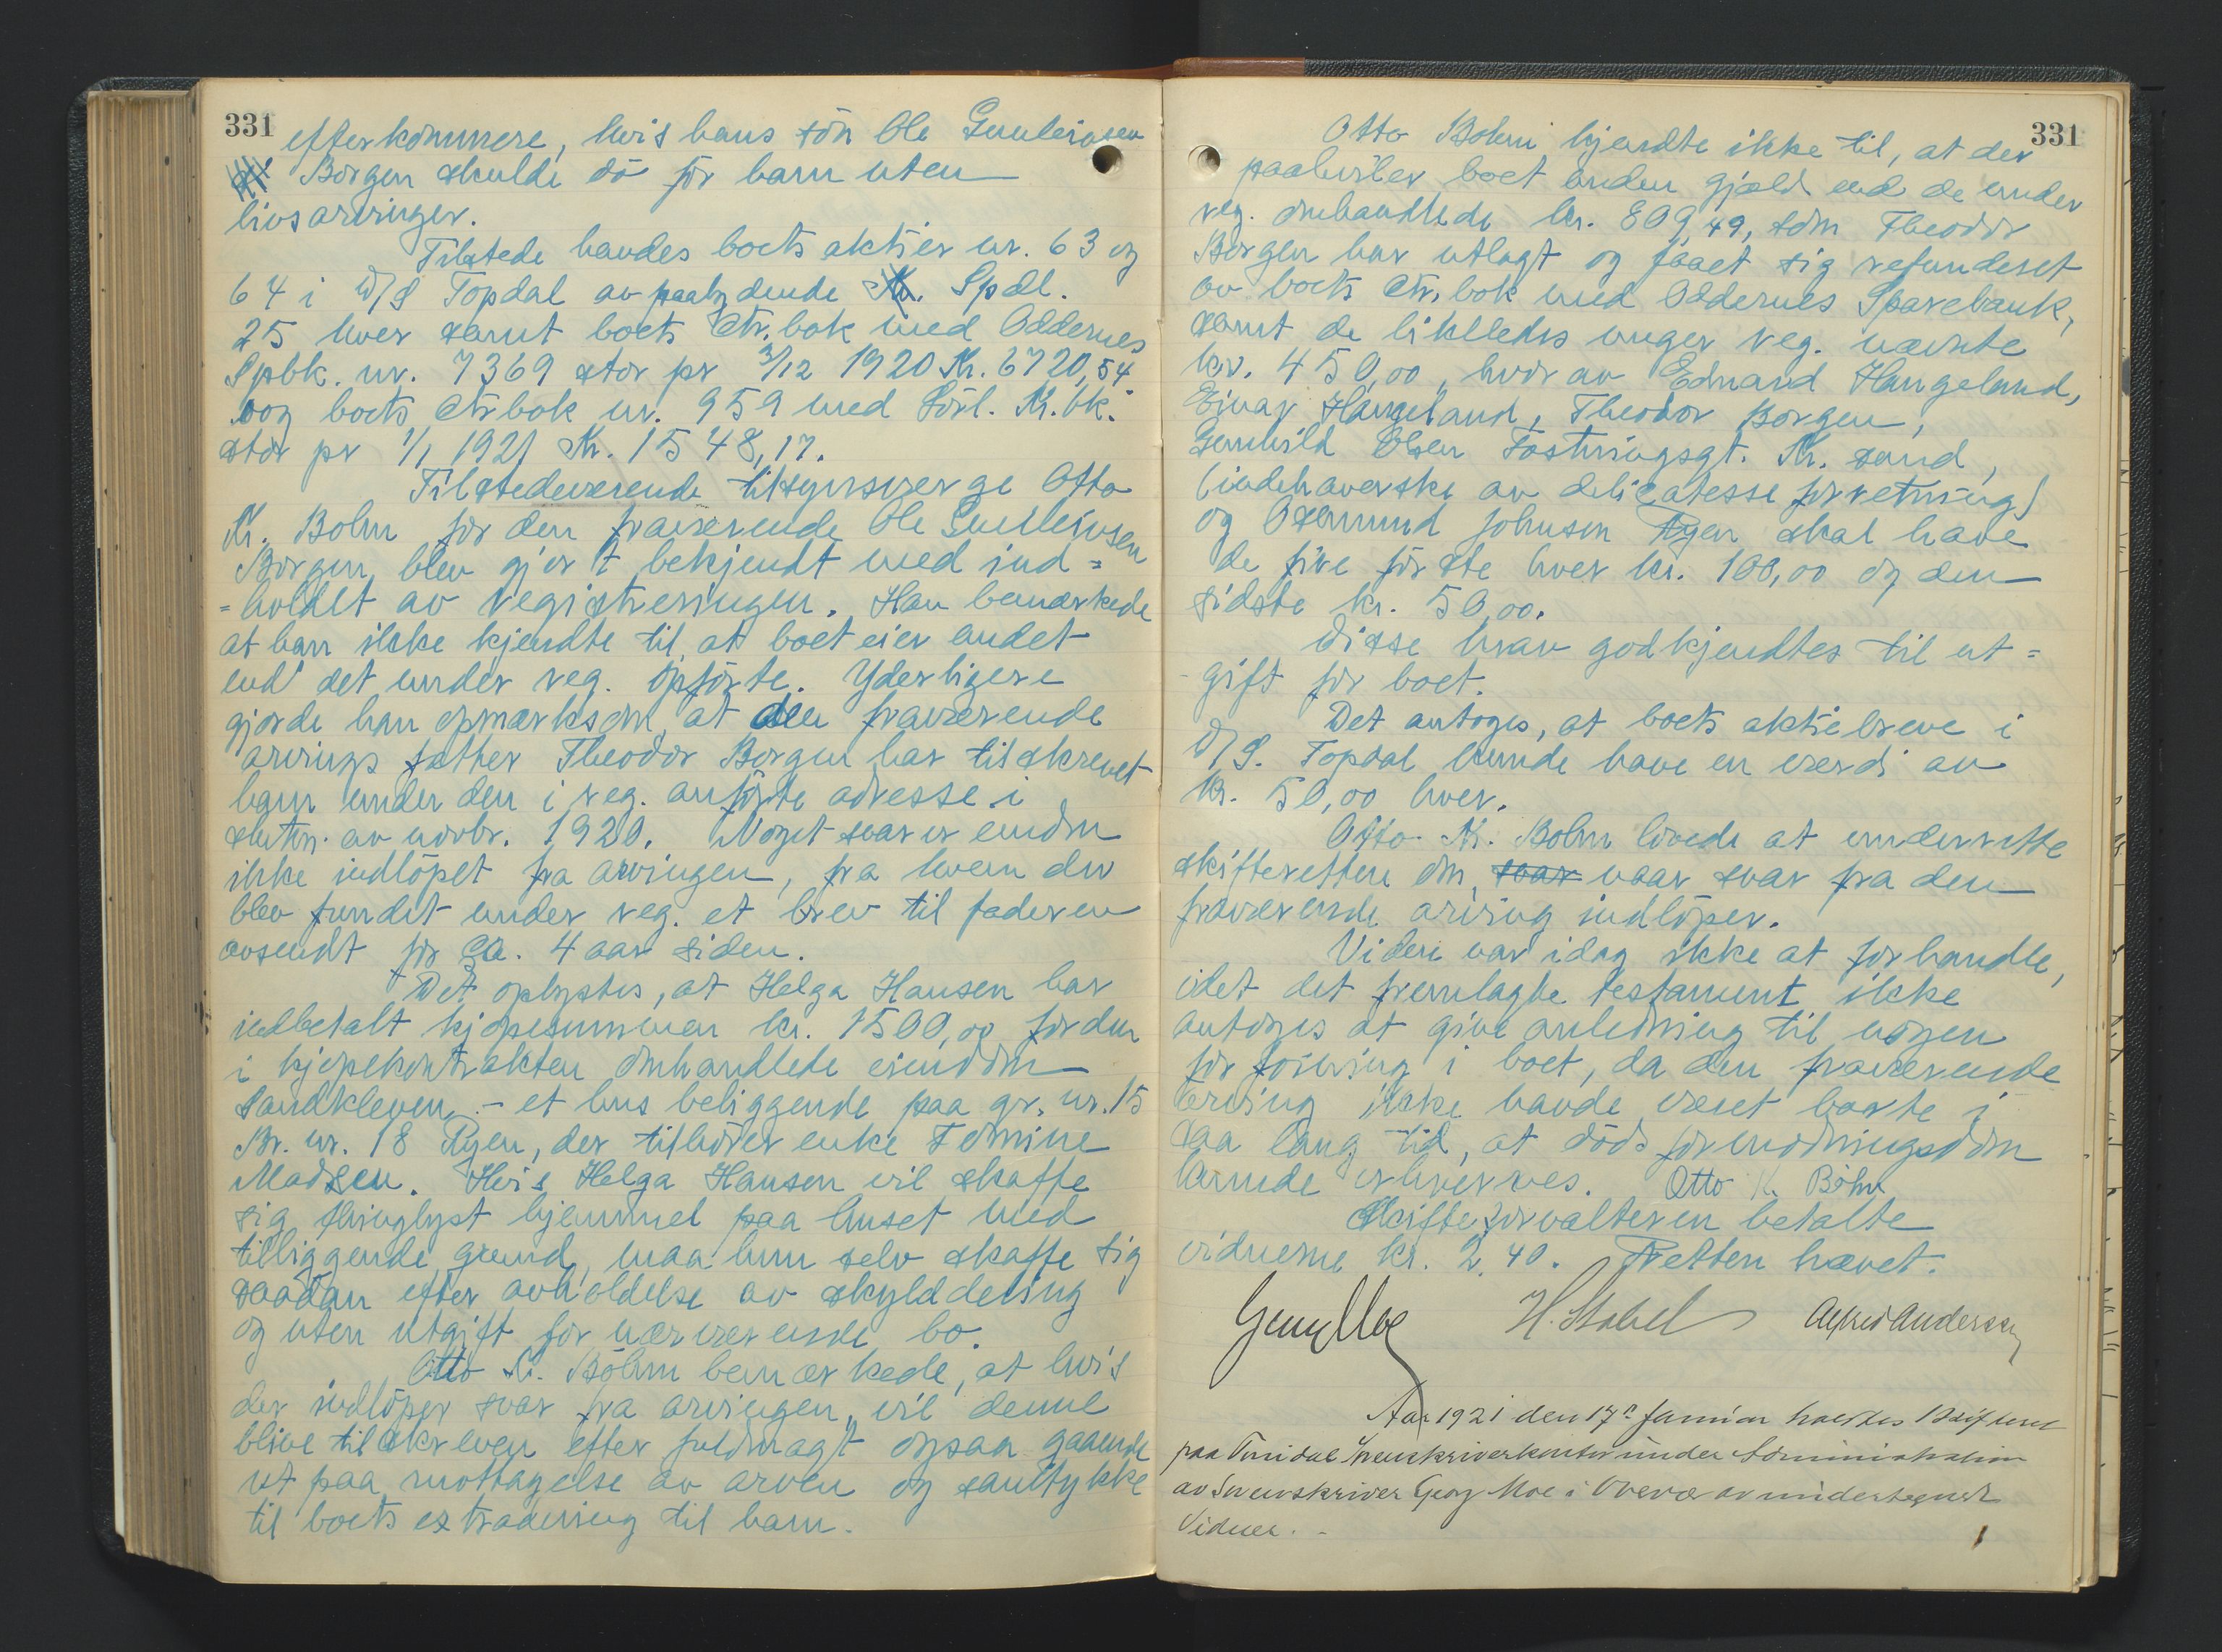 331
efterkommere, hvis hans søn Ole Gunleiusen
Borgen skulde dø før ham uten
livsarvinger.
Tilstede havdes boets aktier nr. 63 og
64 i D/S Topdal av paalydende Spdl.
25 hver samt boets Ctr.bok med Oddernes
Spbk. nr. 7369 stor pr 31/12 1920 Kr. 6720,54
og boets Ctrbok nr. 959 med Sörl. Kr.bk.
stor pr 1/1 1921 Kr. 1548,17.
Tilstedeværende tilsynsværge Otto
K. Bohn for den fraværende Ole Gunleiusen
Borgen blev gjort bekjendt med ind=
=holdet av registreringen. Han bemærkede
at han ikke kjendte til, at boet eier andet
end det under reg. opførte. Yderligere
gjorde han opmerksom, at den fraværende
arvings fætter Theodor Borgen har tilskrevet
ham under den i reg. anførte adresse i
slutn. av novbr. 1920. Noget svar er endnu
ikke indløpet fra arvingen, fra hvem der
blev fundet under reg. et brev til faderen
avsendt for ca. 4 aar siden.
Det oplystes, at Helga Hansen har
indbetalt kjøpesummen kr. 1500,00 for den
i kjøpekontrakten omhandlede eiendom
Sandkleven - et hus beliggende paa gr. nr. 15
Br. nr. 18 Ryen, der tilhører enke Tomine
Madsen. Hvis Helga Hansen vil skaffe
sig thinglyst hjemmel paa huset med
tilliggende grund, maa hun selv skaffe sig
saadan efter avholdelse av skylddeling
og uten utgift for nærværende bo.
Otto K. Böhn bemærkede, at hvis
der indløper svar fra arvingen, vil denne
blive tilskreven efter fuldmagt ogsaa gaaende
ut paa mottagelse av arven og samtykke
til boets extradering til ham.
331
Otto Bohn kjendte ikke til, at der
paahviler boet anden gjæld end de under
reg. omhandlede kr. 809,49, som Theodor
Borgen har utlagt og faaet sig refunderet
av boets Ctr.bok med Oddernes Sparebank,
samt de likeledes unger reg. nævnte
kr. 450,00, hvorav Edvard Haugeland,
Einar Haugeland, Theodor Borgen,
Gunhild Olsen Kr. sand,
(indehaverske av delicatesse forretning)
og Osmund Johnsen Ryen skal have
de fire første hver kr. 100,00 og den
sidste kr. 50,00.
Disse krav godkjendtes til ut=
gift for boet.
Det antoges, at boets aktiebreve i
D/S. Topdal kunde have en værdi av
kr. 50,00 hver.
Otto K. Bohn lovede at underrette
skifteretten om, svar naar svar fra den
fraværende arving indløper.
Videre var idag ikke at forhandle,
idet det fremlagte testament ikke
antoges at give anledning til nogen
forføining i boet, da den fraværende
arving ikke havde været borte i
saa lang tid, at dødsformodningsdom
kunde erhverves. Otto K. Böhn
Skifteforvalteren betalte
vidnerne kr. 2,40. Retten hævet.
Georg Moe H. Stabel Alfred Andersen
Aar 1921 den 17de Januar holdtes Skifteret
paa Sorenskriverkontor under Administration
av Sorenskriver Georg Moe i Overvær av undertegnede
Vidner. -